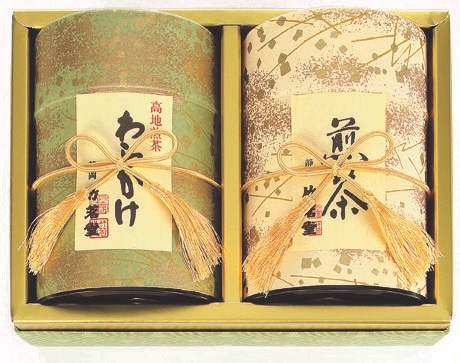 高地煎茶
わらかけ
静岡 竹茗堂
煎茶
静 竹茗堂